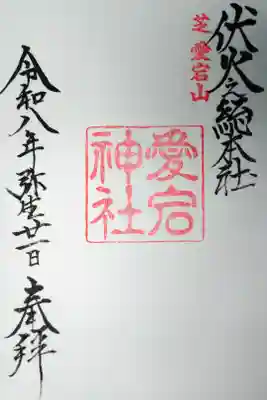 伏火之総本社
芝 愛宕山
愛宕
神社
令和八年弥生廿一日 奉拝